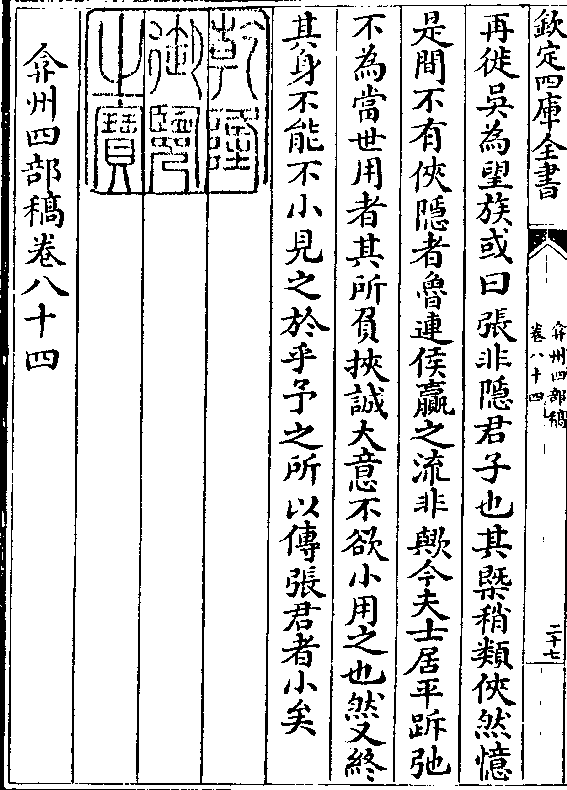 欽定四庫全書
弇州四部稿
卷八十四
二十七
再徙吳為望族或曰張非隱君子也其槩稍類俠然憶
是間不有俠隱者魯連侯嬴之流非歟今夫士居平跅弛
不為當世用者其所負挾誠大意不欲小用之也然又終
其身不能不小見之於乎予之所以傳張君者小矣
乾隆
御覽
之寶
弇州四部稿卷八十四